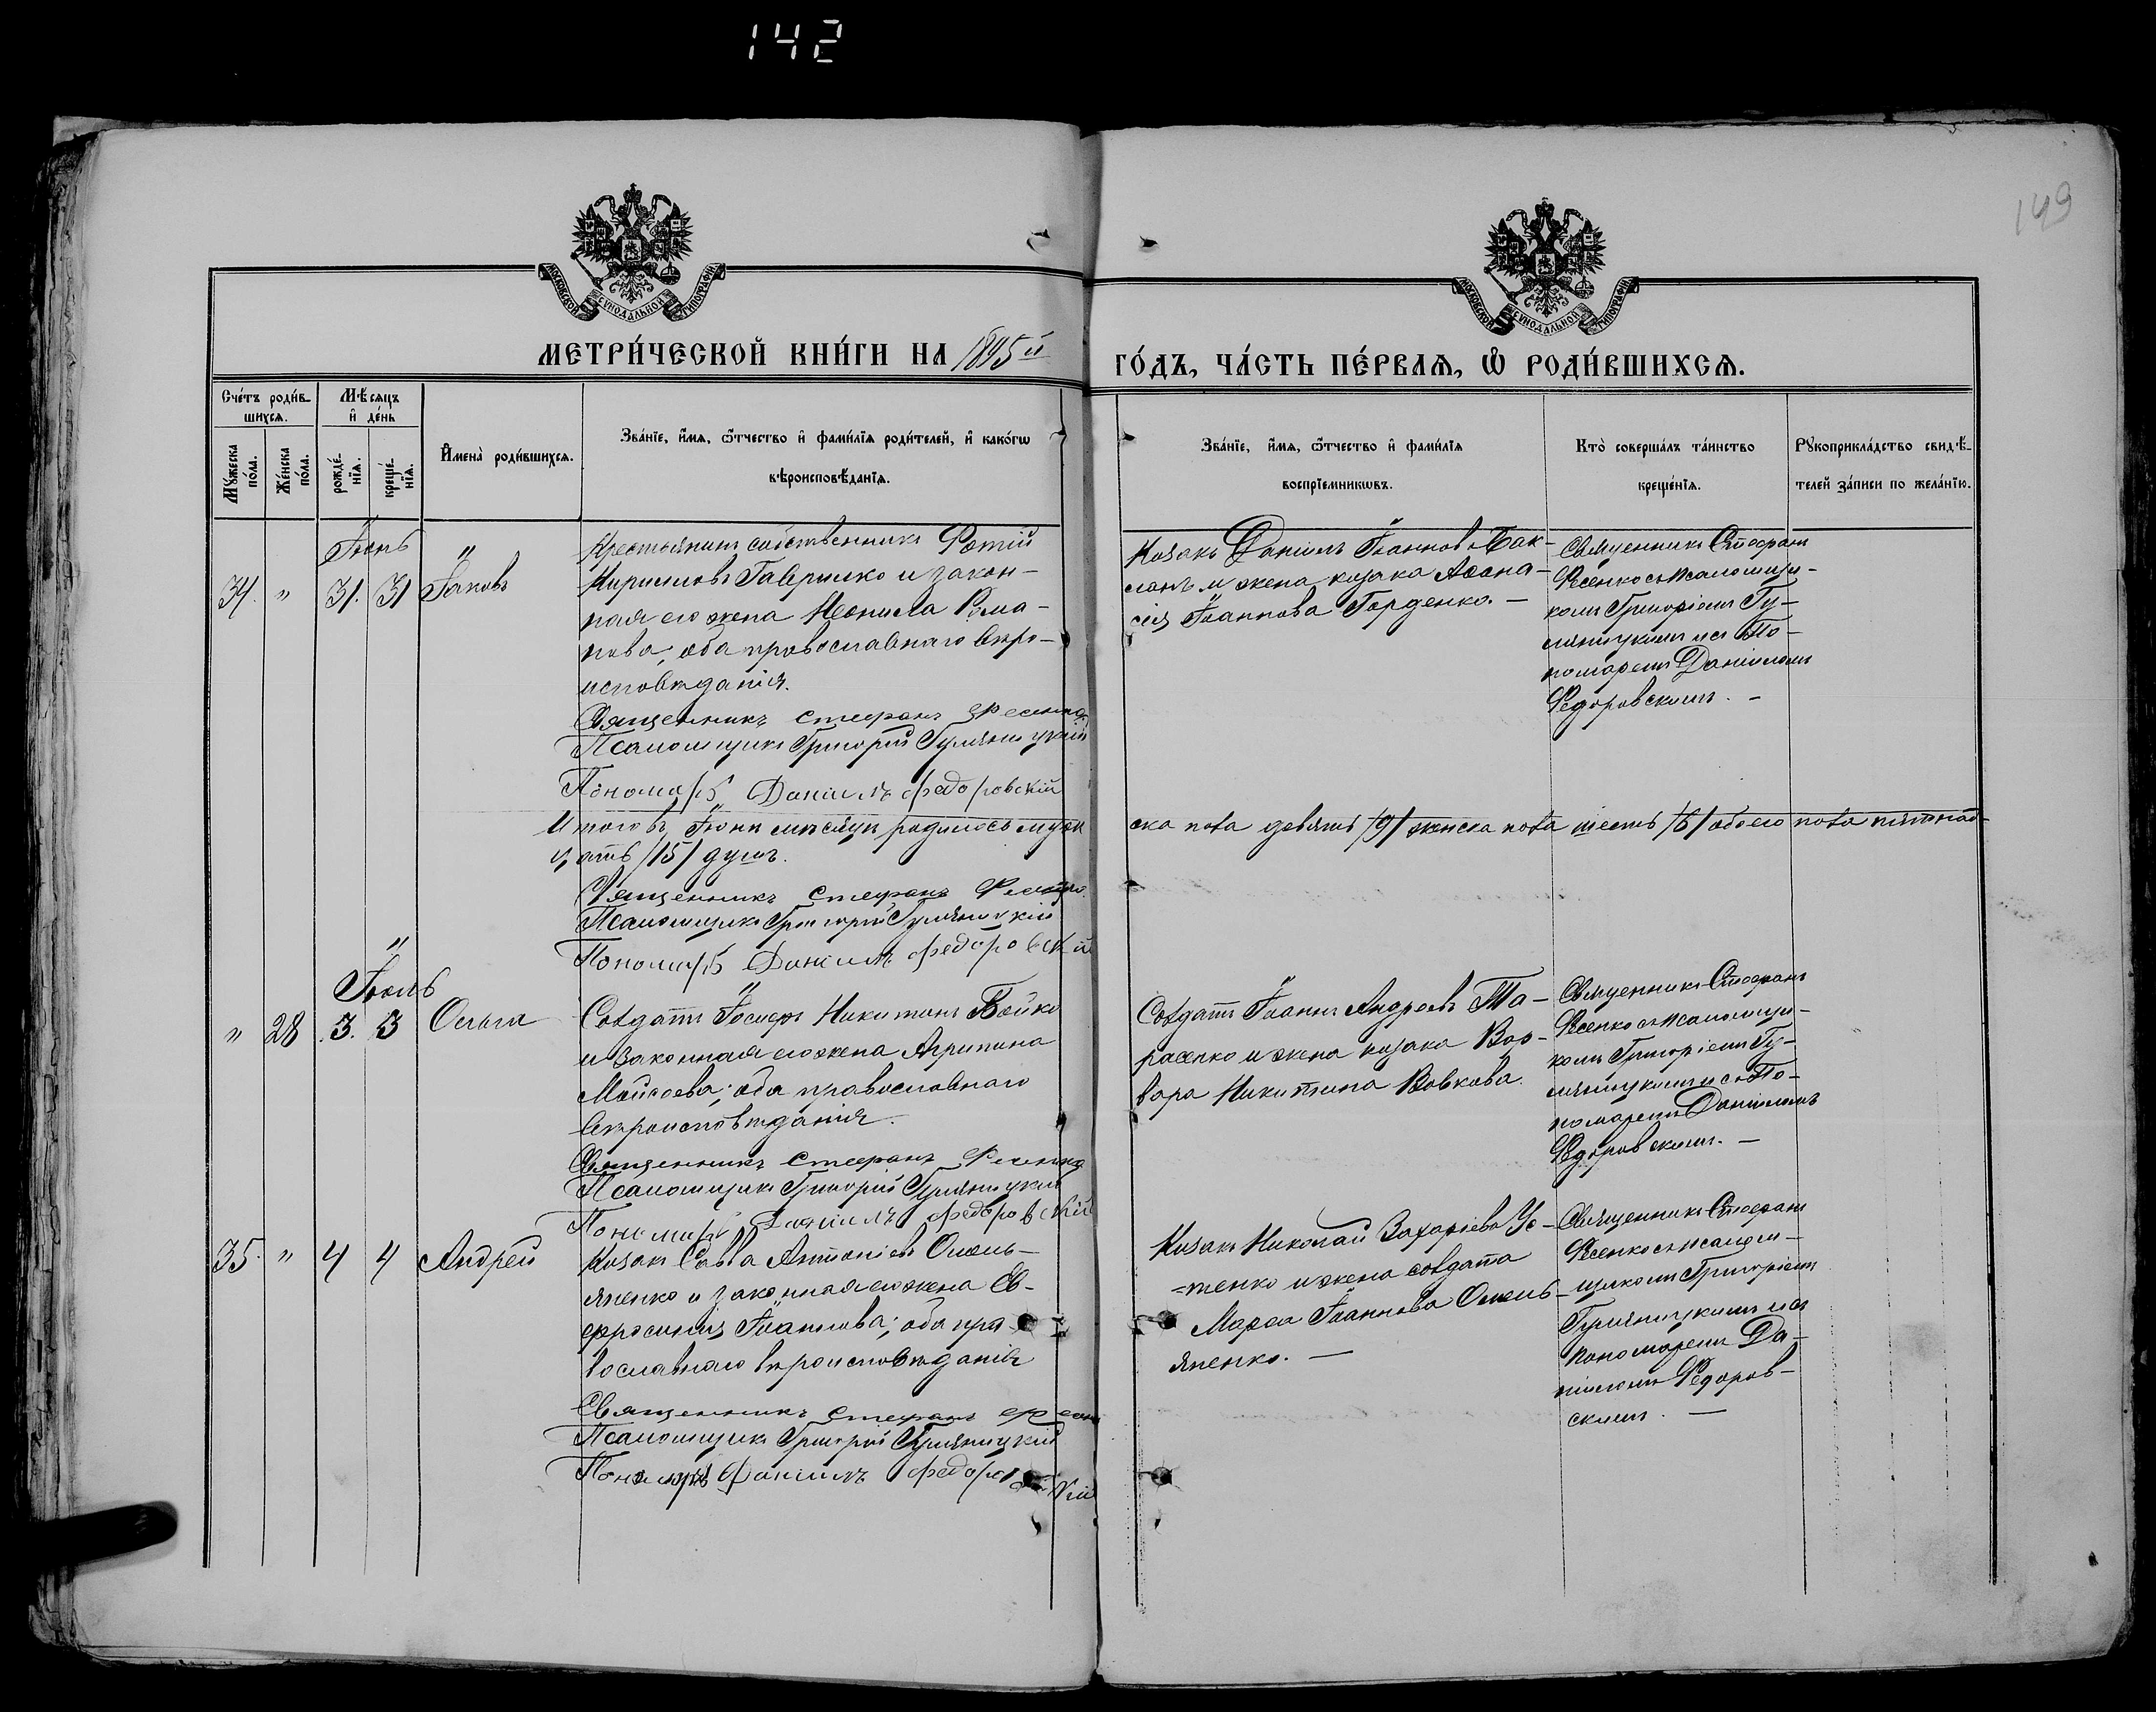 142
149
МОСКОВСКОЙ СѴНОДАЛЬНОЙ ТИПОГРАФІИ
МОСКОВСКОЙ СѴНОДАЛЬНОЙ ТИПОГРАФІИ
МЕТРИ́ЧЕСКОЙ КНИ́ГИ НА 1895й ГО́ДЪ, ЧА́СТЬ ПЕ́РВАѦ, Ѡ҆ РОДИ́ВШИХСѦ.
Сче́тъ роди́в-
шихсѧ.
Мꙋ́жеска по́ла.
Же́нска по́ла.
Мѣ́сѧцъ
и҆ де́нь
рожде́-
нїѧ.
креще́-
нїѧ.
И҆мена̀ роди́вшихсѧ.
Зва́нїе, и҆́мѧ, ѻ҆́тчество и҆ фами́лїѧ роди́телей, и҆ како́гѡ
вѣроисповѣ́данїѧ.
Зва́нїе, и҆́мѧ, ѻ҆́тчество и҆ фами́лїѧ
воспрїе́мникѡвъ.
Кто̀ соверша́лъ та́инство
креще́нїѧ.
Рꙋкоприкла́дство свидѣ́-
телей за́писи по жела́нїю.
Іюнь
34. " 31. 31 Іаковъ
Крестьянинъ собственникъ Фотій
Кирилловъ Гаврилко и закон-
ная его жена Неонила Рома-
нова, оба православнаго веро-
исповѣданія.
Священникъ Стефанъ Фесенко
Псаломщикъ Григорій Гуляницкій
Пономарь Даніилъ Федоровскій
Козакъ Даніилъ Іоанновъ Бак-
ланъ и жена козака Аѳана-
сія Іоаннова Горденко. —
Священникъ Стефанъ
Фесенко съ псаломщи-
комъ Григоріемъ Гу-
ляницкимъ и съ По-
номаремъ Даніиломъ
Федоровскимъ. —
Итого въ Іюнѣ мѣсяцѣ родилось муже
ска пола девять /9/ женска пола шесть /6/ обоего пола пятнад-
цать /15/ душъ.
Священникъ Стефанъ Фесенко
Псаломщикъ Григорій Гуляницкій
Пономарь Даніилъ Федоровскій
Іюль
" 28 3. 3 Ольга
Солдатъ Іосифъ Никитинъ Бойко
и законная его жена Агрипина
Мойсеева; оба православнаго
вѣроисповѣданія.
Священникъ Стефанъ Фесенко
Псаломщикъ Григорій Гуляницкій
Пономарь Даніилъ Федоровскій
Солдатъ Іоаннъ Андреевъ Та-
расенко и жена козака Вар-
вара Никитина Вовкова.
Священникъ Стефанъ
Фесенко съ псаломщи-
комъ Григоріемъ Гу-
ляницкимъ и съ По-
номаремъ Даніиломъ
Федоровскимъ. —
35. " 4 4 Андрей
Козакъ Савва Антоніевъ Омель-
яненко и законная его жена Ев-
фросинія Іоаннова; оба пра-
вославнаго вѣроисповѣданія
Священникъ Стефанъ Фесен
Псаломщикъ Григорій Гуляницкій
Пономарь Даніилъ Федоровскій
Козакъ Николай Захаріевъ Ус-
=тенко и жена солдата
Марѳа Іоаннова Омель-
яненко. —
Священникъ Стефанъ
Фесенко съ псалом-
щикомъ Григоріемъ
Гуляницкимъ и съ
пономаремъ Да-
ніиломъ Федоров-
скимъ. —